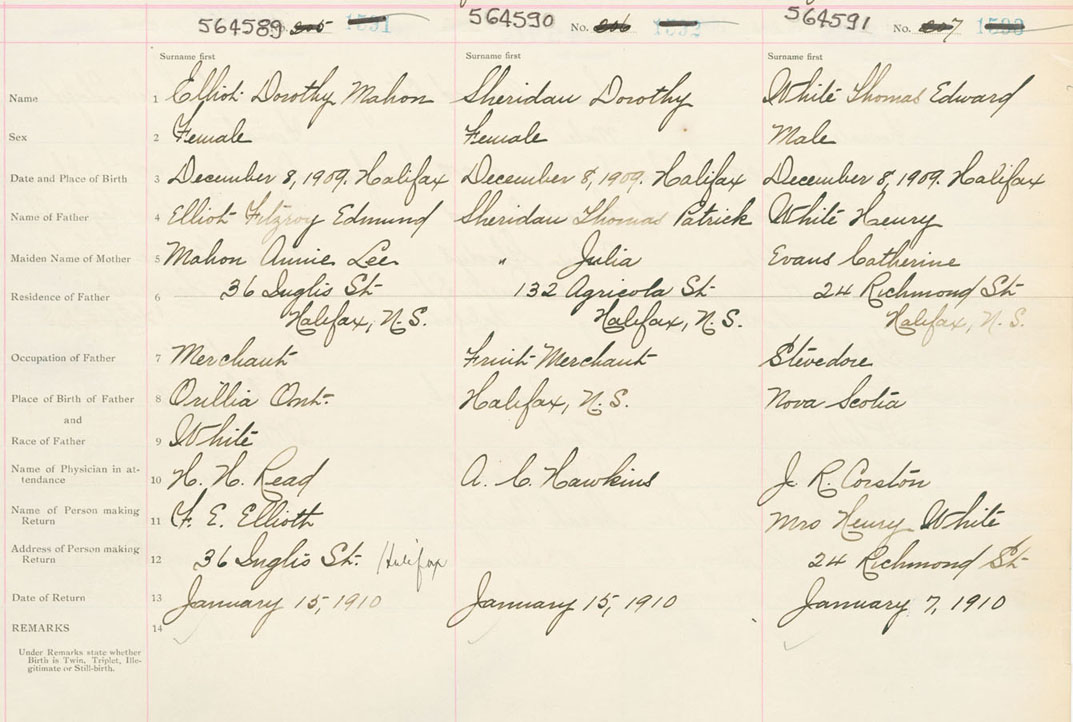 564589 No. 805 1591 564590 No. 806 1592 564591 No. 807
Surname first Surname first Surname first
Name 1 Elliot Dorothy Mahon Sheridan Dorothy White Thomas Edward
Sex 2 Female Female Male
Date and Place of Birth 3 December 8, 1909. Halifax December 8, 1909. Halifax December 8, 1909. Halifax
Name of Father 4 Elliot Fitzroy Edmund Sheridan Thomas Patrick White Henry
Maiden Name of Mother 5 Mahon Annie Lee " Julia Evans Catherine
Residence of Father 6 36 Inglis St. 132 Agricola St. 24 Richmond St.
Halifax, N.S. Halifax, N.S. Halifax, N.S.
Occupation of Father 7 Merchant Fruit Merchant Stevedore
Place of Birth of Father 8 Orillia Ont. Halifax, N.S. Nova Scotia
and
Race of Father 9 White
Name of Physician in at-
tendance 10 H. H. Read A. C. Hawkins J. R. Corston
Name of Person making
Return 11 F. E. Ellioth Mrs Henry White
Address of Person making
Return 12 36 Inglis St. Halifax 24 Richmond St.
Date of Return 13 January 15, 1910 January 15, 1910 January 7, 1910
REMARKS 14
Under Remarks state whether
Birth is Twin, Triplet, Ille-
gitimate or Still-birth.